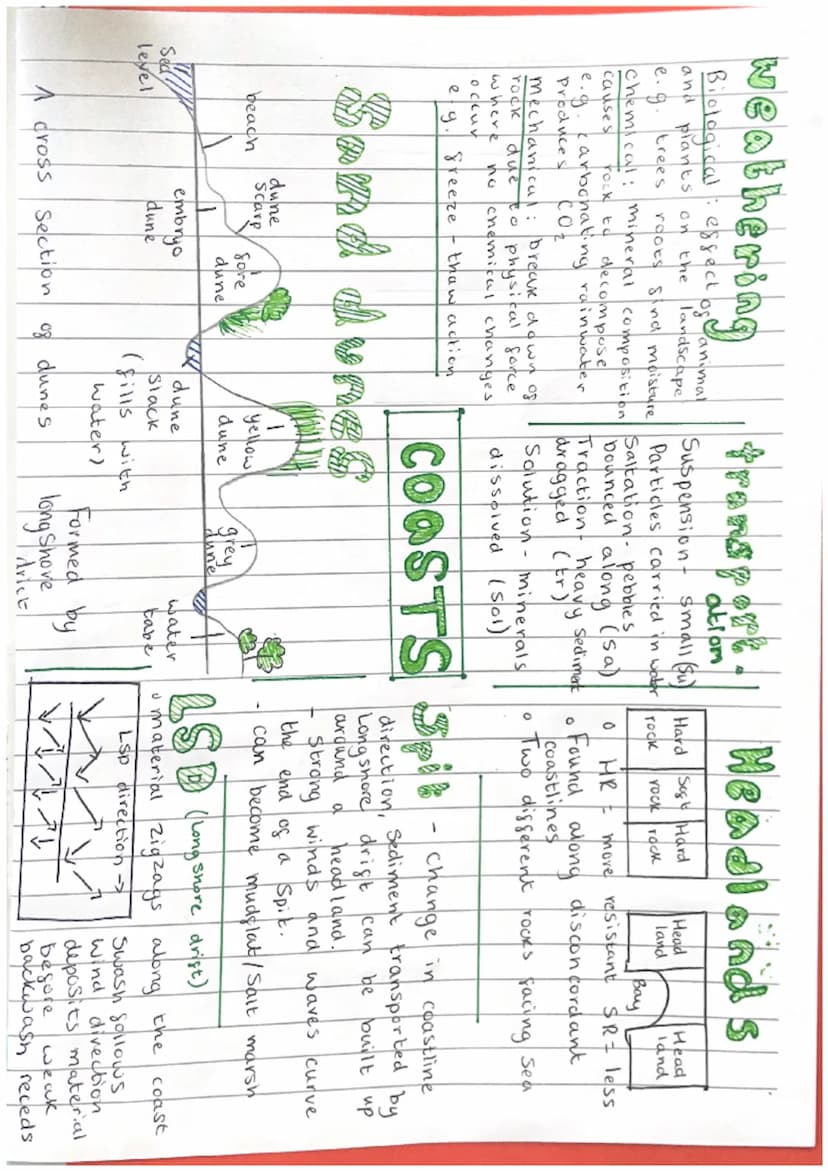 weathering
Biological : effect of animal
and plants on the landscape
e.g. trees roots find moisture
chemical : mineral composition
causes rock to decompose
e.g. carbonating rainwater
produces CO2
mechanical : break down of
rock due to physical force
where no chemical changes
occur
e.g. freeze - thaw action
transport.
ation
Suspension - small (su)
Particles carried in water
Saltation - pebbles
bounced along (sa)
Traction - heavy sediment
dragged (tr)
Solution - minerals
dissolved (sol)
Headlands
Hard rock
Soft rock
Hard rock
Head land
Bay
Head land
o HR = more resistant SR = less
o Found along disconcordant
coastlines
o Two different rocks facing sea
COASTS
Sand dunes
Sea level
beach
embryo dune
dune scarp
fore dune
dune slack
(fills with
water)
yellow dune
grey dune
water tabe
A cross section of dunes
Formed by
longshore
drict
Spit - Change in coastline
direction, sediment transported by
Longshore drift can be built up
around a headland.
- Strong winds and waves curve
the end of a spit.
- can become mudflat/salt marsh
LSD (Longshore drift)
o material zigzags along the coast
LSD direction ->
Swash follows
wind direction
deposits material
before weak
backwash receds